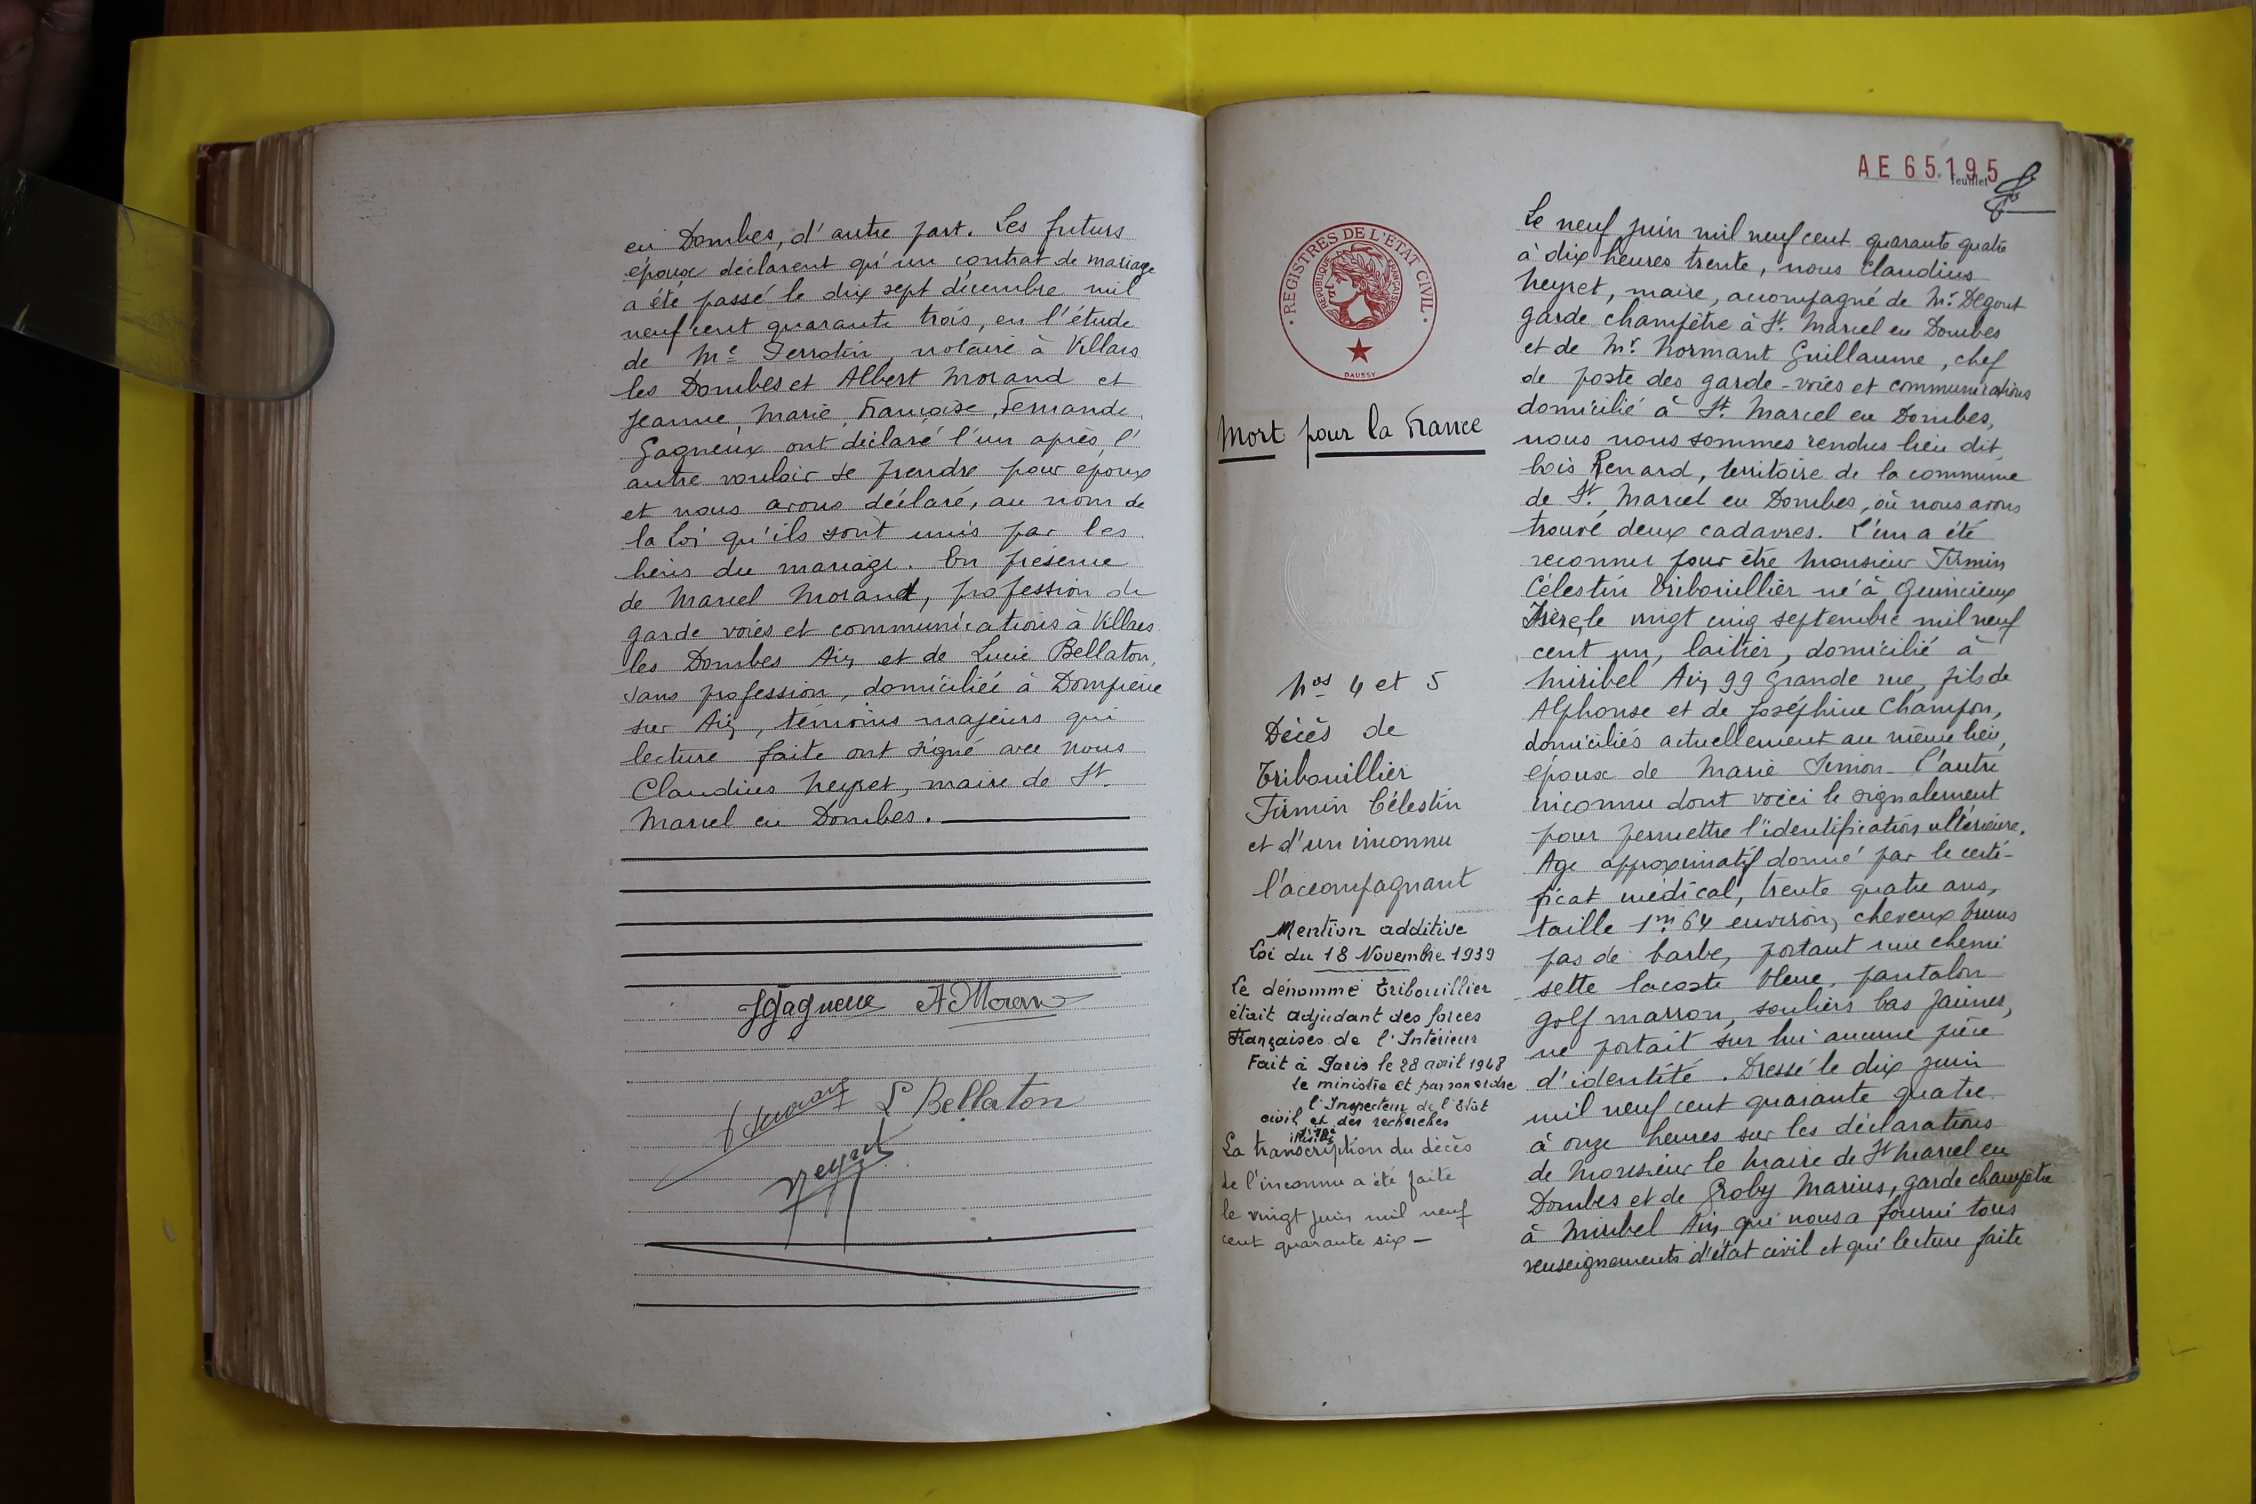 en Dombes, d'autre part. Les futurs
époux déclarent qu'un contrat de mariage
a été passé le dix sept décembre mil
neuf cent quarante trois, en l'étude
de Me Ferrotin, notaire à Villars
les Dombes et Albert Morand et
Jeanne, Marie, Françoise, Fernande,
Gagneux ont déclaré l'un après l'
autre vouloir se prendre pour époux
et nous avons déclaré, au nom de
la loi qu'ils sont unis par les
liens du mariage. En présence
de Marcel Morand, profession de
garde voies et communications à Villars
les Dombes Ain et de Lucie Bellaton,
sans profession, domiciliée à Dompierre
sur Ain, témoins majeurs qui
lecture faite ont signé avec nous
Claudius Neyret, maire de St
Marcel en Dombes.
JGagneux A Moran
L Bellaton
Neyret
AE 65195
feuillet
REGISTRES DE L'ETAT CIVIL
REPUBLIQUE FRANÇAISE
DAUSSY
Mort pour la France
Nos 4 et 5
Décès de
Tribouillier
Firmin Célestin
et d'un inconnu
l'accompagnant
Mention additive
Loi du 18 Novembre 1939
Le dénommé Tribouillier
était adjudant des forces
Françaises de l'Intérieur
Fait à Paris le 28 avril 1948
le ministre et par son ordre
l'Inspecteur de l'Etat
civil et des recherches
La transcription du décès
de l'inconnu a été faite
le vingt juin mil neuf
cent quarante six —
Le neuf juin mil neuf cent quarante quatre
à dix heures trente, nous Claudius
Neyret, maire, accompagné de Mr Degout
garde champêtre à St. Marcel en Dombes
et de Mr. Normant Guillaume, chef
de poste des garde-voies et communications
domicilié à St. Marcel en Dombes,
nous nous sommes rendus lieu dit
bois Renard, territoire de la commune
de St. Marcel en Dombes, où nous avons
trouvé deux cadavres. L'un a été
reconnu pour être Monsieur Firmin
Célestin Tribouillier né à Quincieux
Isère, le vingt cinq septembre mil neuf
cent un, laitier, domicilié à
Miribel Ain 99 Grande rue, fils de
Alphonse et de Joséphine Champon,
domiciliés actuellement au même lieu,
époux de Marie Simon. L'autre
inconnu dont voici le signalement
pour permettre l'identification ultérieure.
Age approximatif donné par le certi-
ficat médical, trente quatre ans,
taille 1m.64 environ, cheveux bruns
pas de barbe, portant une chemi
sette lacoste bleue, pantalon
golf marron, souliers bas jaunes,
ne portait sur lui aucune pièce
d'identité. Dressé le dix juin
mil neuf cent quarante quatre
à onze heures sur les déclarations
de Monsieur le Maire de St Marcel en
Dombes et de Groby Marius, garde champêtre
à Miribel Ain, qui nous a fourni tous
renseignements d'état civil et qui lecture faite